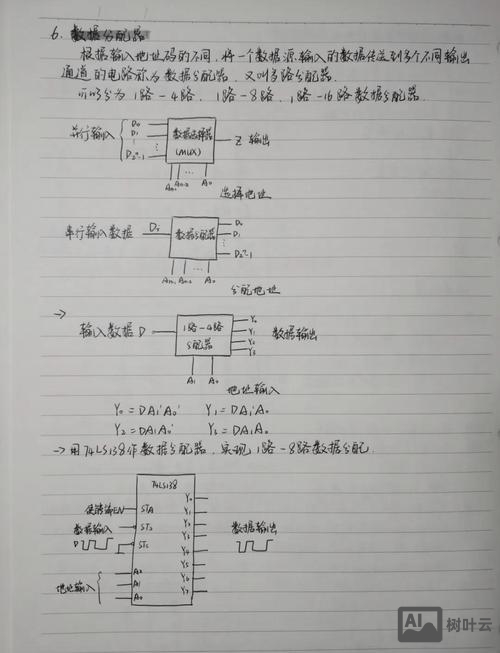 6. 数据分配器
根据输入地址码的不同,将一个数据源输入的数据传送到多个不同输出
通道的电路称为数据分配器,又叫多路分配器.
可以分为1路-4路、1路-8路、1路-16路数据分配器.
并行输入 D₀ D₁ ⋮ D₂ⁿ-1 数据选择器 (MUX) Z 输出
Aₙ₋₁ Aₙ₋₂ … A₀
选择地址
串行输入数据 数据分配器 D₀ D₁ ⋮ D₂ⁿ-1
Aₙ₋₁ Aₙ₋₂ … A₀
分配地址
→
输入数据D 1路-4路 分配器 Y₀ Y₁ Y₂ Y₃ 数据输出
A₁ A₀
地址输入
Y₀=DA₁'A₀' Y₁=DA₁'A₀
Y₂=DA₁A₀' Y₃=DA₁A₀
→用74LS138作数据分配器,实现1路-8路数据分配.
74LS138
使能端EN STA
数据输入 D
地址输入 A₂ A₁ A₀
Y₀
Y₁
Y₂
Y₃
Y₄
Y₅
Y₆
Y₇
数据输出
AI 树叶云